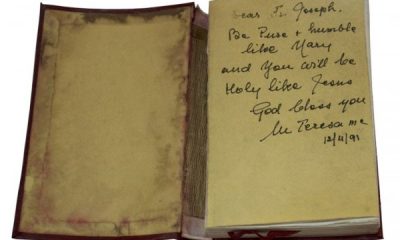 Dear Fr. Joseph.
Be Pure + humble
like Mary
and you will be
Holy like Jesus
God bless you
M Teresa mc
12/11/91